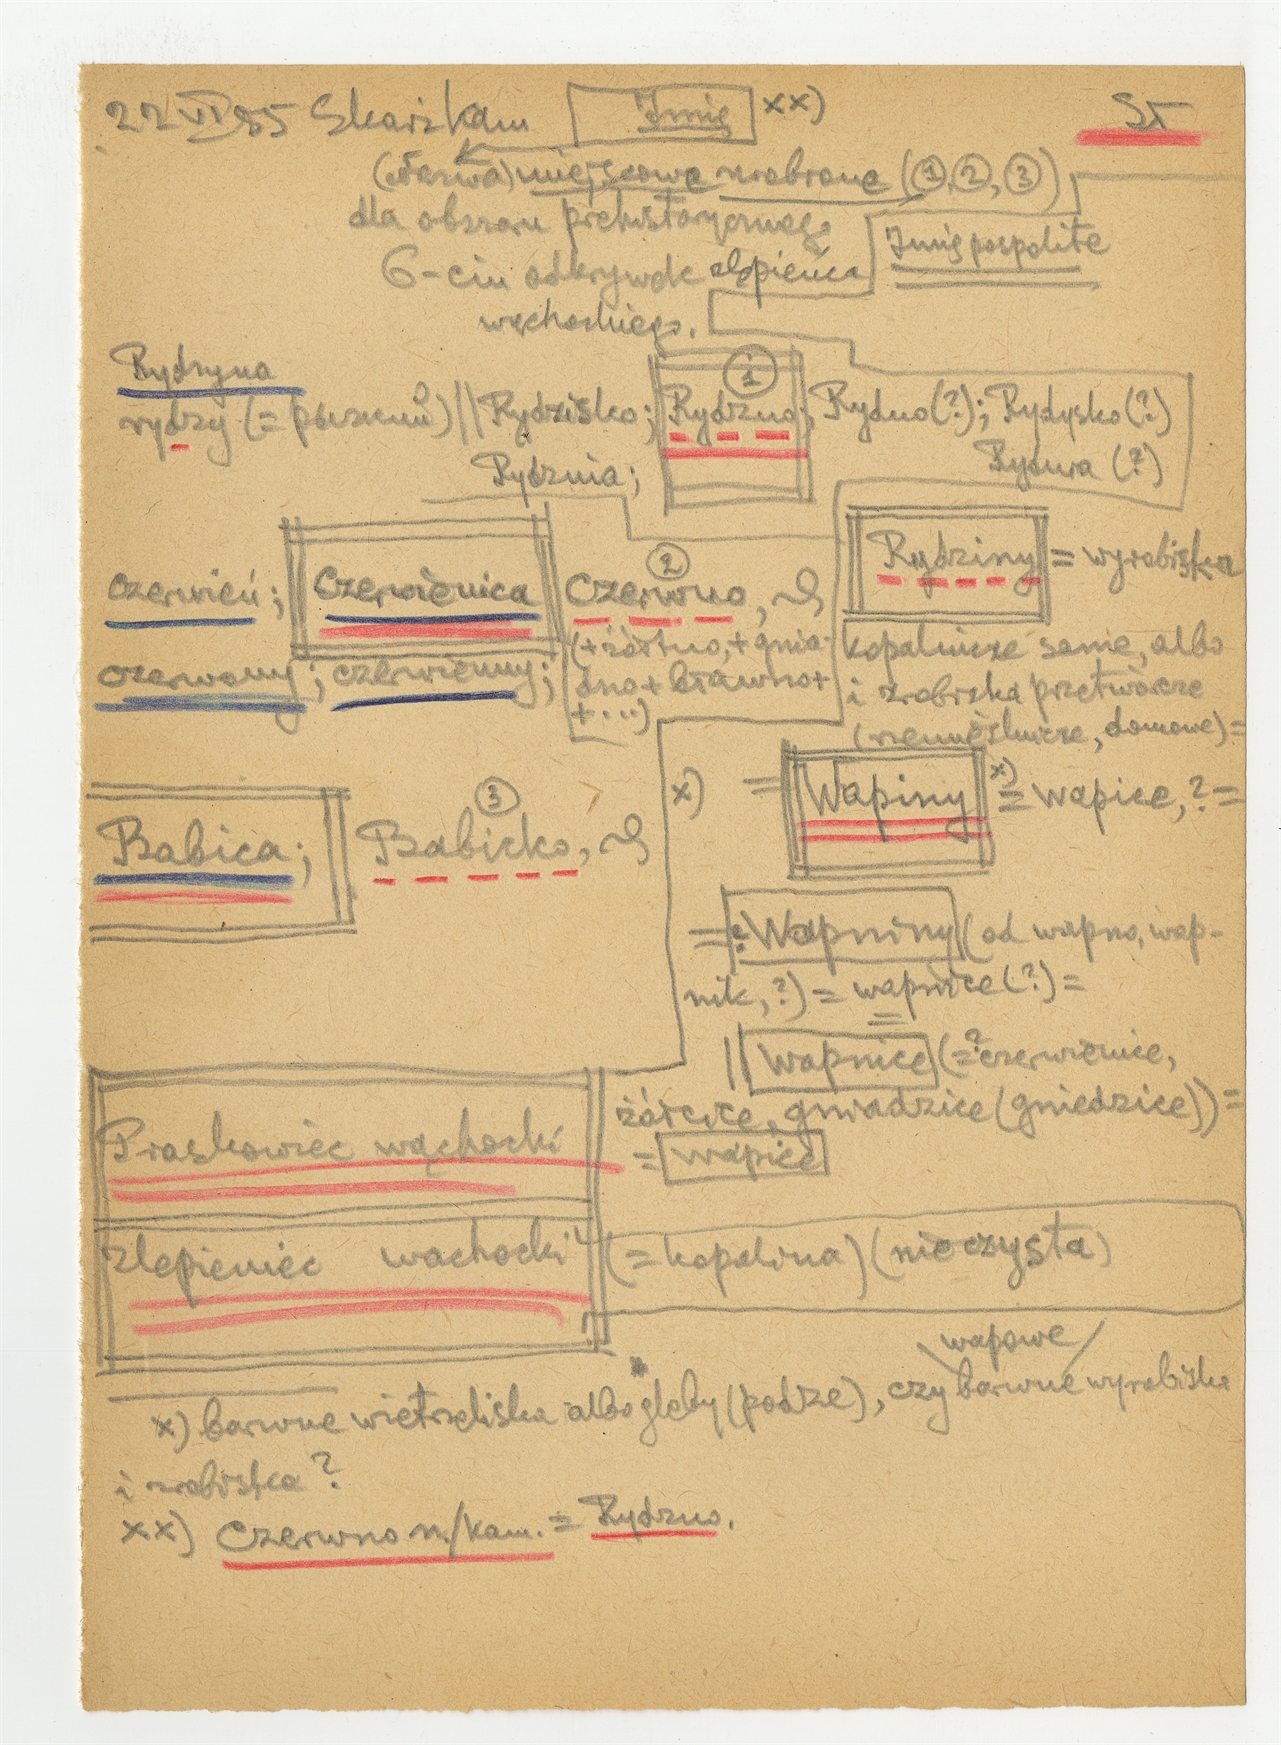 22 VI 85 Skarżkam Imię xx) St
(własna) miejscowe urobione (1, 2, 3)
dla obszaru prehistorycznego
6-ciu odkrywek zlepieńca
wąchockiego.
Imię pospolite
Rydzyna
rydzy (= ) || Rydzisko; Rydzno, Rydno (?); Rydysko (?)
1
Rydznia; Rydwa (?)
czerwień; Czerwienica Czerwno,
2
czerwony; czerwienny; (+żółtno, + gnia-
dno + bławno +
+ ...)
Rydziny = wyrobiska
kopalnicze same, albo
i zrobiska przetwórcze
(rzemieślnicze, domowe) =
x) = Wapiny x) = wapice, ? =
Babica; Babicko,
3
= ? Wapniny (od wapno, wap-
nik, ?) = wapnice (?) =
=
|| wapnice (=? czerwienice,
żółcice, gniadzice (gniedzice)) =
= wapice
Piaskowiec wąchocki
zlepieniec wąchocki (= kopalina) (nieczysta)
wapowe
x) barwne wietrzeliska albo gleby (podze), czy barwne wyrobiska
i zrobiska ?
xx) Czerwno n./kam. = Rydzno.